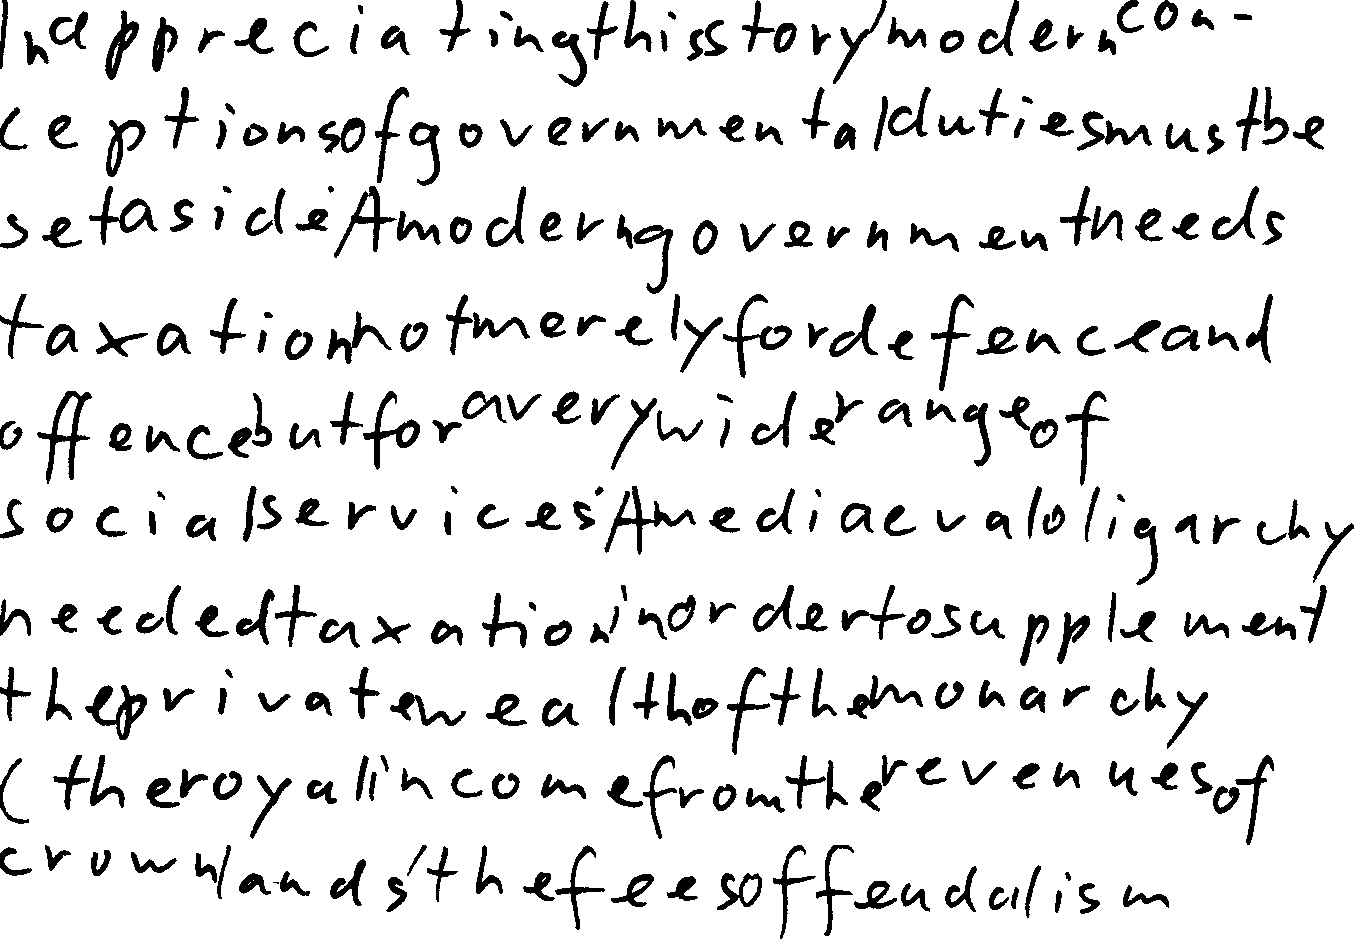 In appreciating this story modern con-
ceptions of governmental duties must be
set aside. A modern government needs
taxation not merely for defence and
offence but for a very wide range of
social services. A mediaeval oligarchy
needed taxation in order to supplement
the private wealth of the monarchy
(the royal income from the revenues of
crown lands, the fees of feudalism